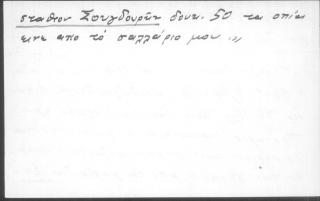 σταθιον Σουγδουρῆν δουκ. 50 τα οποία
εινε απο τό σαλλάριο μου .,,